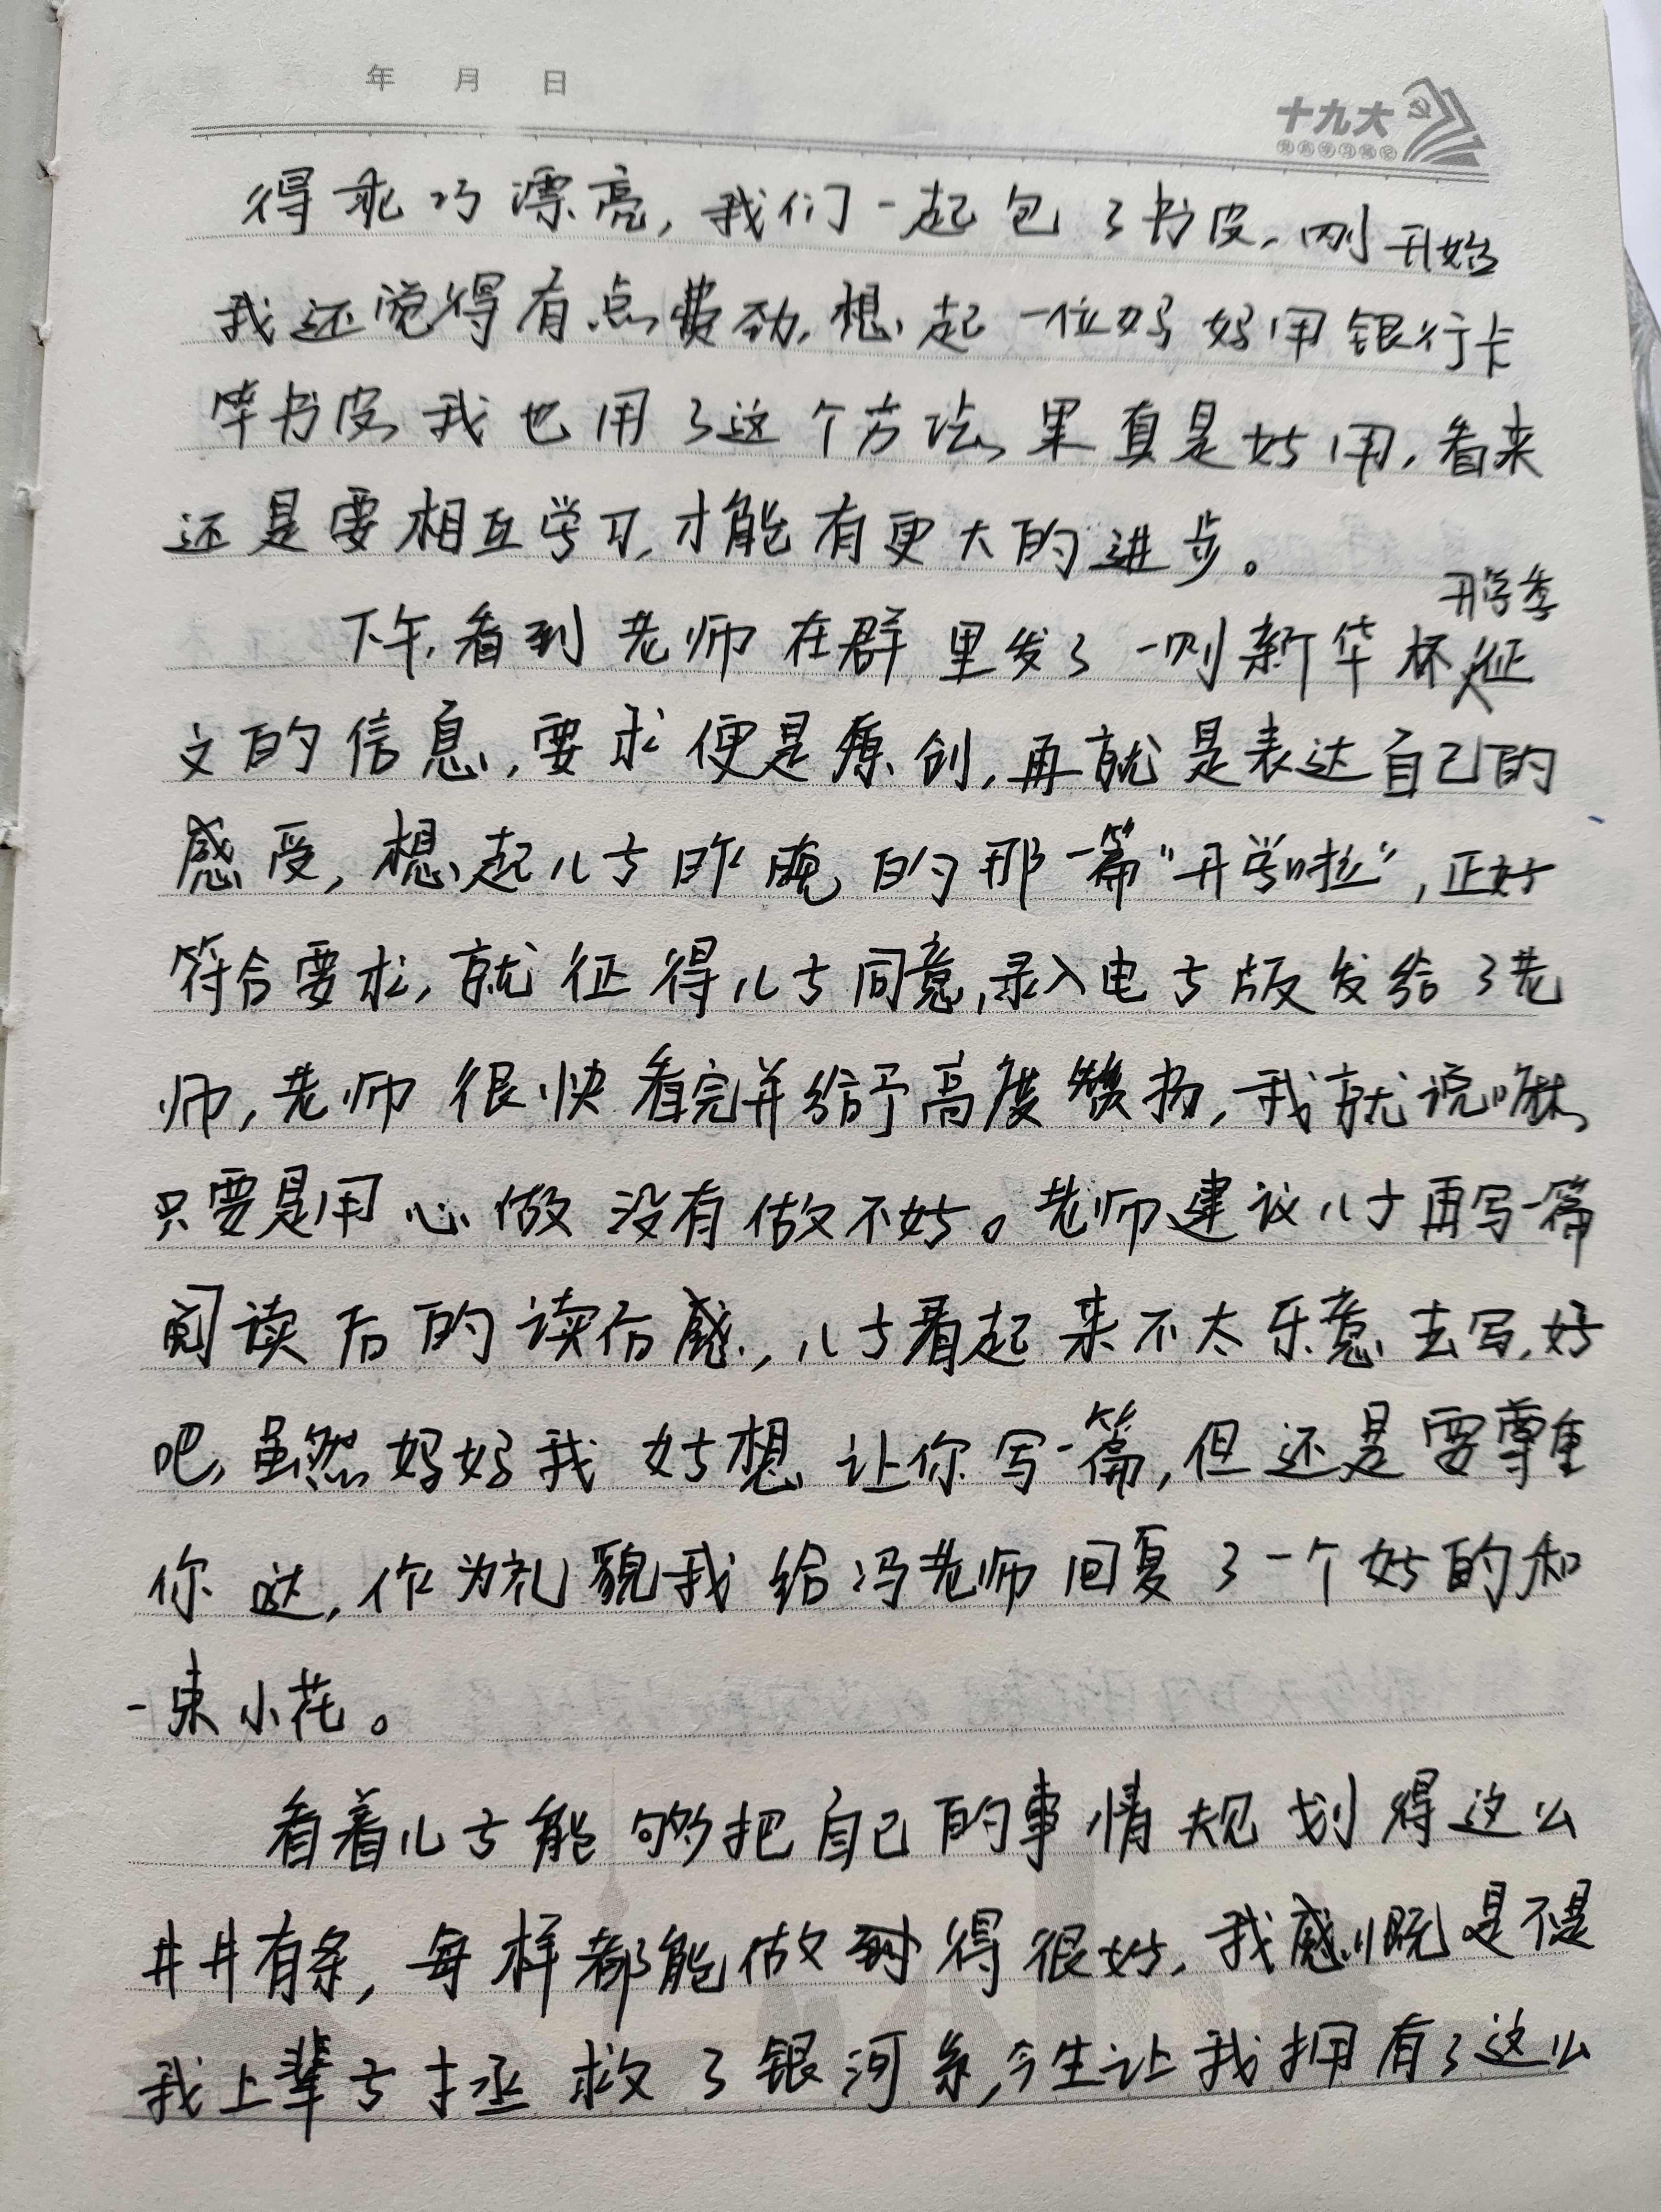 年 月 日
十九大
得乖巧漂亮,我们一起包了书皮,刚开始
我还觉得有点费劲,想起一位妈妈用银行卡
竿书皮,我也用了这个方法,果真是好用,看来
还是要相互学习,才能有更大的进步。
开学季
下午,看到老师在群里发了一则新华杯征
文的信息,要求便是原创,再就是表达自己的
感受,想起儿子昨晚的那一篇“开学啦”,正好
符合要求,就征得儿子同意,录入电子版发给了老
师,老师很快看完并给予高度赞扬,我就说嘛,
只要是用心做没有做不好。老师建议儿子再写一篇
阅读后的读后感,儿子看起来不太乐意去写,好
吧,虽然妈妈我好想让你写一篇,但还是要尊重
你哒,作为礼貌我给冯老师回复了一个好的和
一束小花。
看着儿子能够把自己的事情规划得这么
井井有条,每样都能做到得很好,我感慨是不是
我上辈子拯救了银河系,今生让我拥有了这么